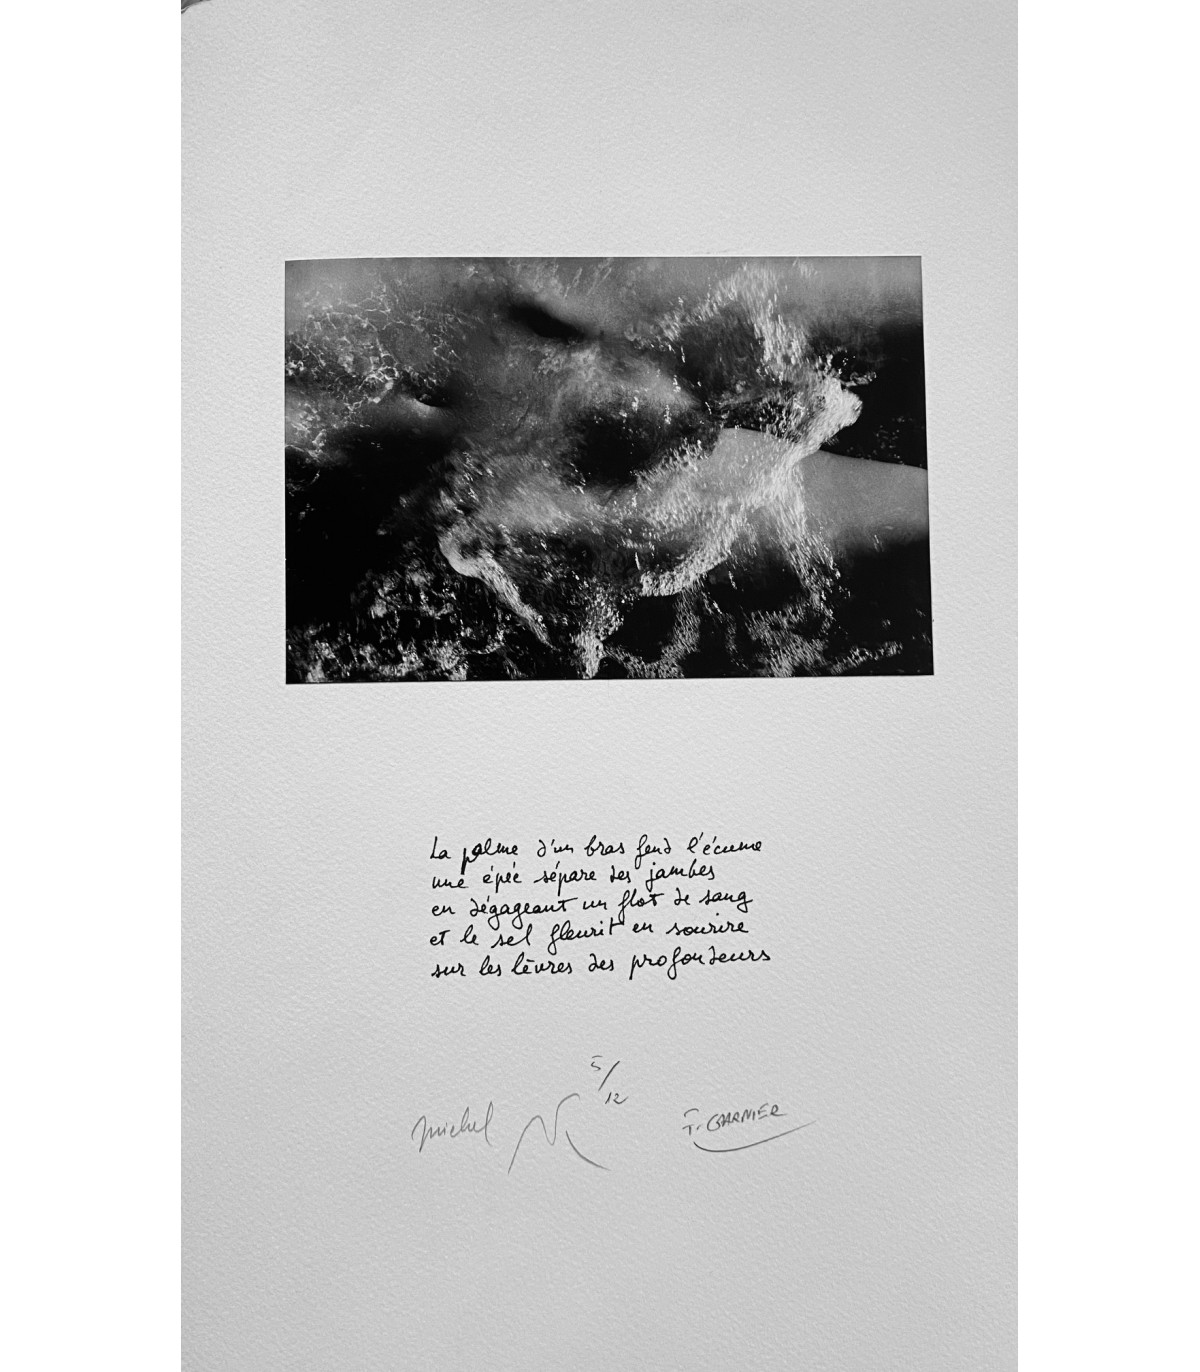 La palme d'un bras fend l'écume
une épée sépare des jambes
en dégageant un flot de sang
et le sel fleurit en sourire
sur les lèvres des profondeurs
5/12
Michel
F. GARNIER